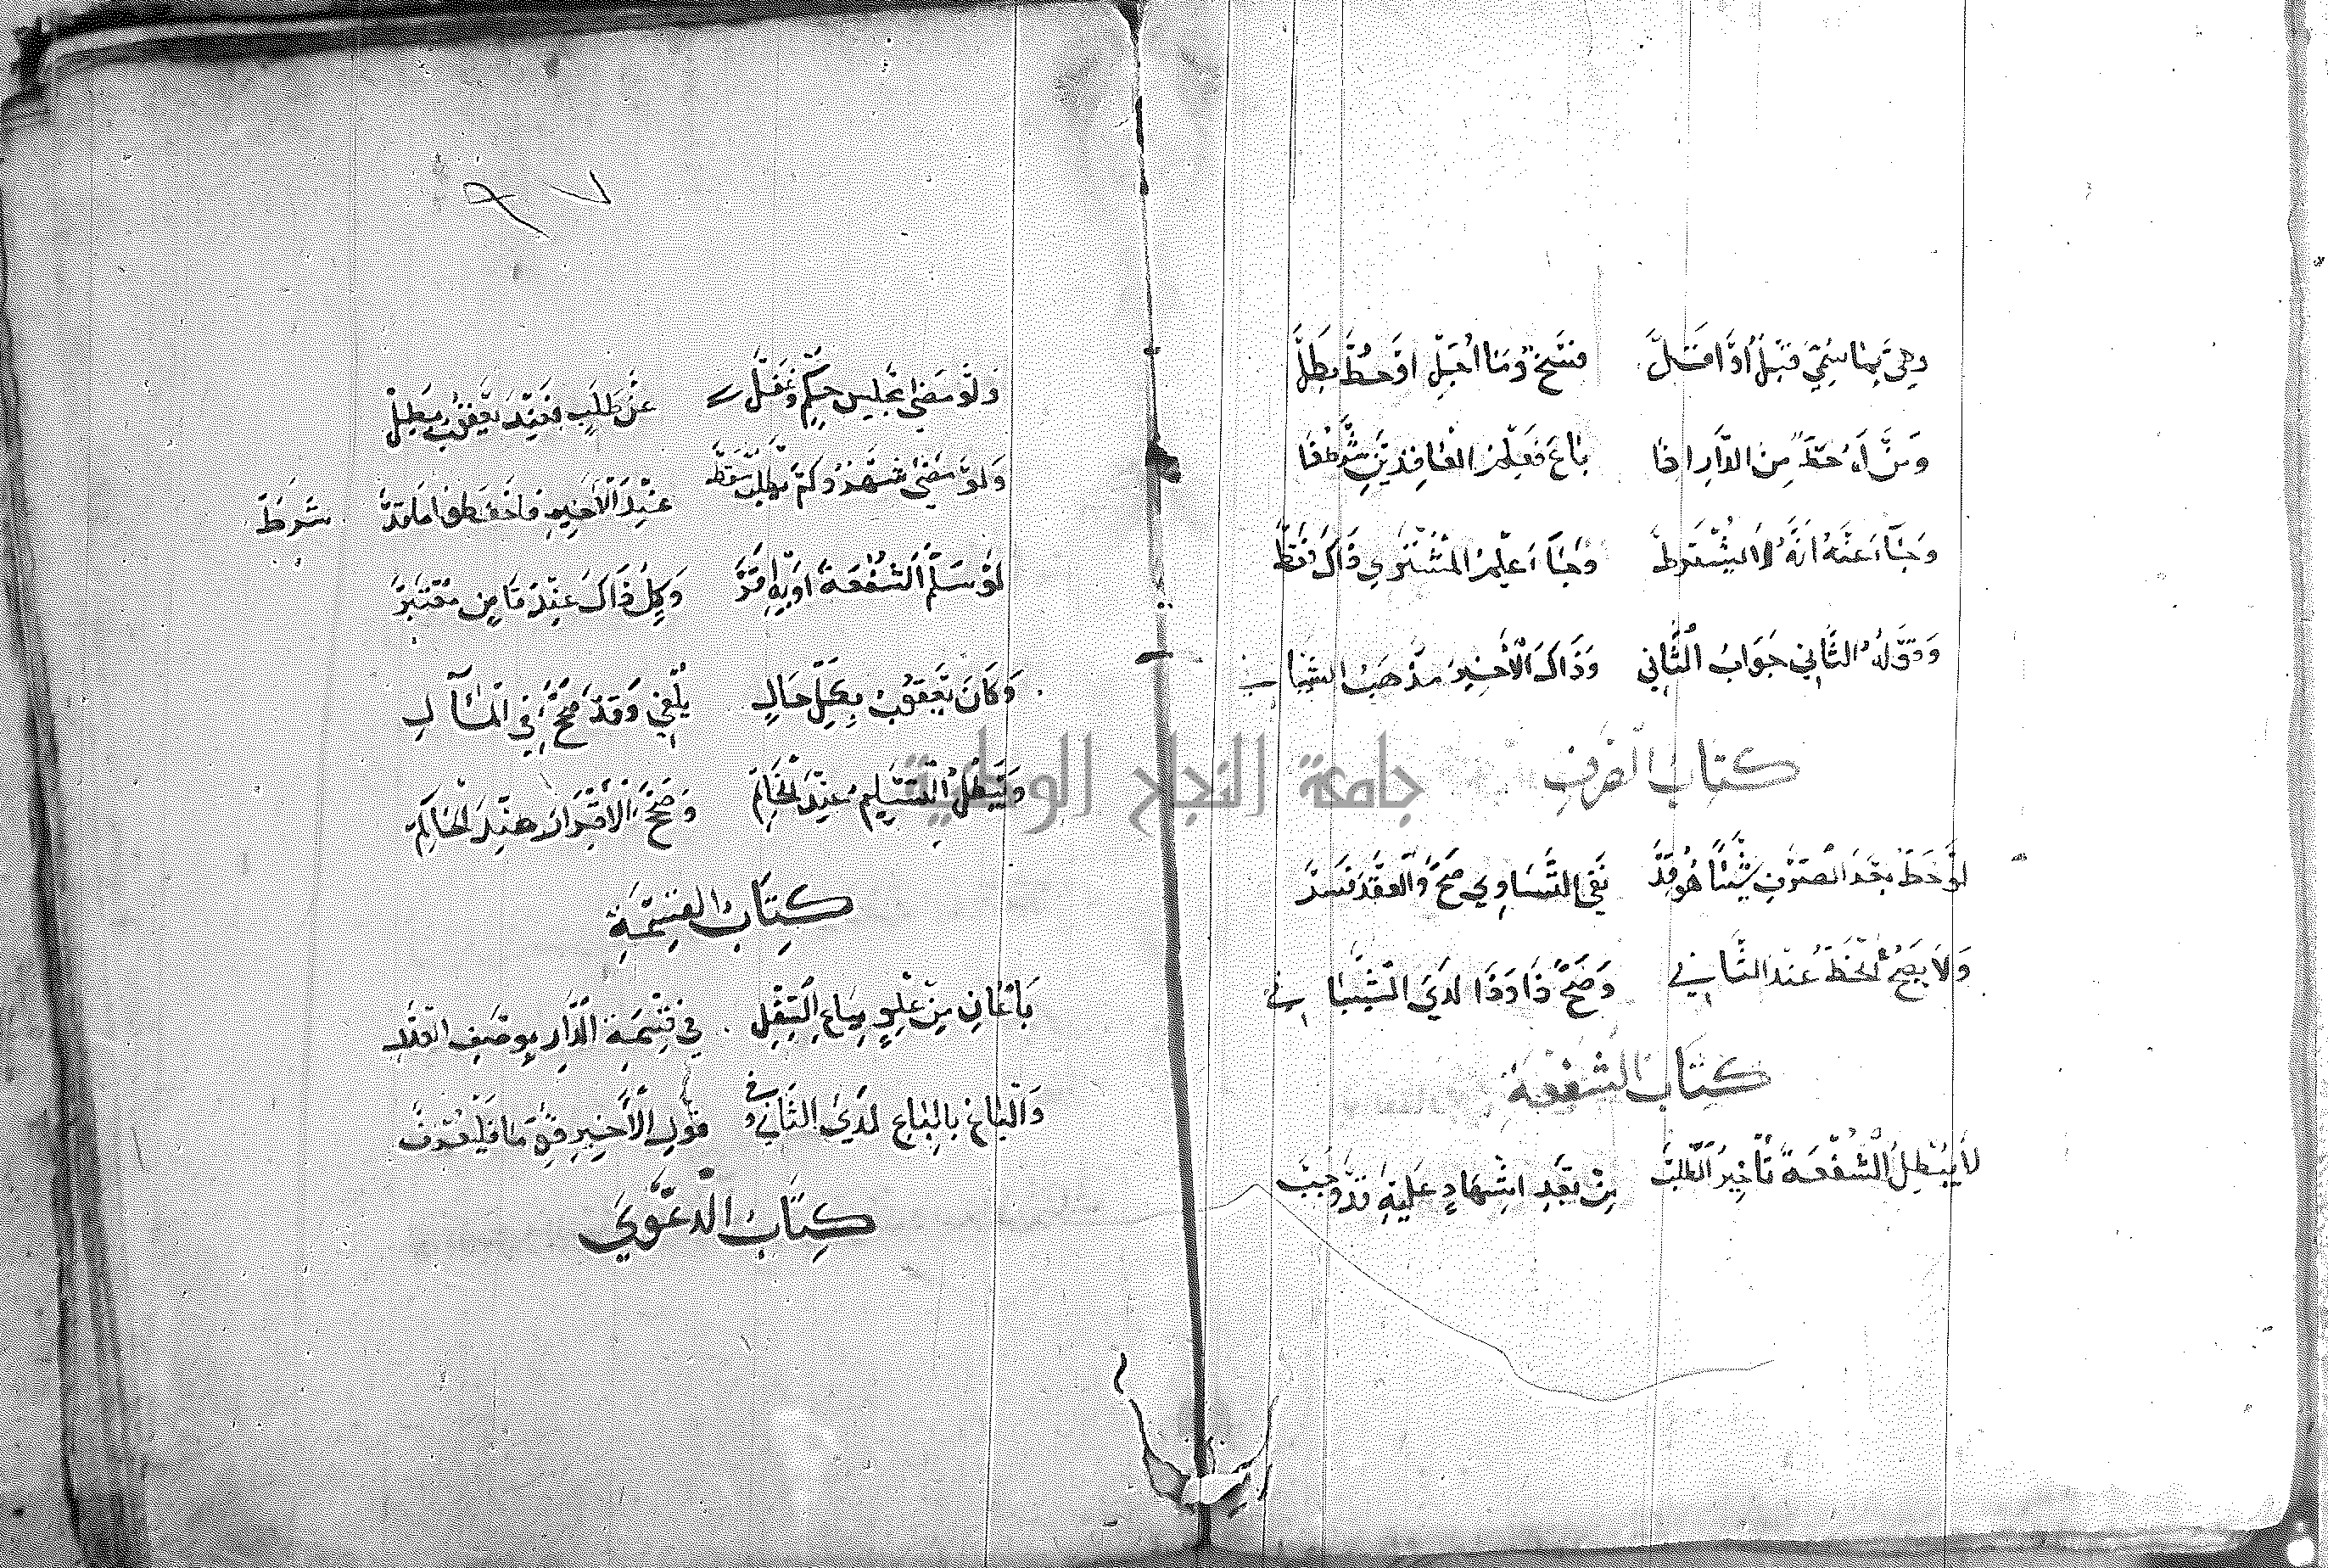 وهي بما سمي قبل أو أقل فسخ وما أجل أو حط بطل
ومن له حق من الدار إذا باع فعلم العاقدين شرط ذا
وجاء عنه أنه لا يشترط وجاء علم المشتري ذاك فقط
وقوله الثاني جواب الثاني وذاك الأخير مذهب الشيباني
كتاب الصرف
لو حط بعد الصرف شيئا هو قد نفى التساوي صح والعقد فسد
ولا يصح الحط عند الثاني وصح ذا وذا لدى الشيباني
كتاب الشفعة
لا يبطل الشفعة تأخير الطلب من بعد إشهاد عليه قد وجب
٩٧
ولو مضى مجلس حكم وغفل عن طلب فعند يعقوب بطل
ولو مضى شهر ولم يطلب سقط عند الأخير فاحفظوا ما قد شرط
لو سلم الشفعة أو به أقر وكيل ذاك عند قاض معتبر
وكان يعقوب بكل حال يلغي وقد صحح في المآل
ويبطل التسليم عند الخاتم وصحح الإقرار عند الحاكم
كتاب القسمة
باعان من علو بباع السفل في قسمة الدار بوصف العدل
والباع بالباع لدى الثاني وفي قول الأخير قوما فليعرف
كتاب الدعوى
جامعة النجاح الوطنية